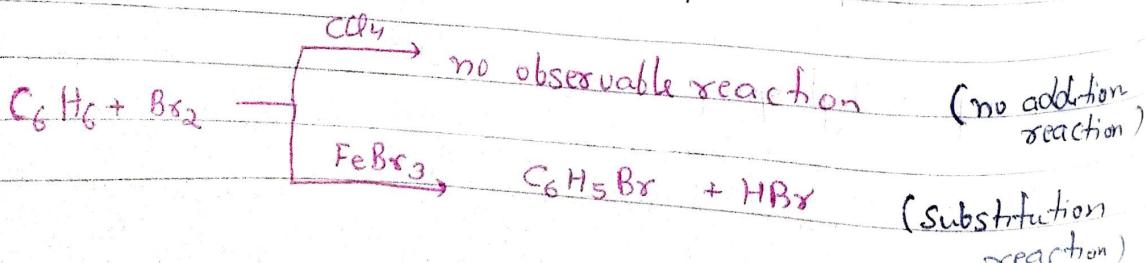 CCl4
no observable reaction (no addition
reaction)
C6H6 + Br2
FeBr3
C6H5Br + HBr (substitution
reaction)